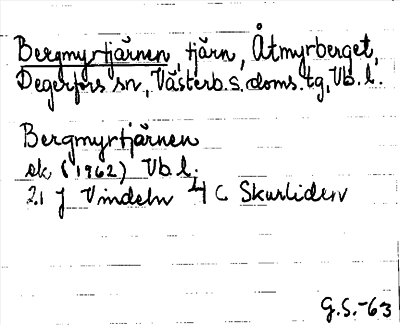 Bergmyrtjärnen, tjärn, Åtmyrberget,
Degerfors sn, Västerb.s. doms. tg, Vb. l.
Bergmyrtjärnen
ek (1962) Vb l.
21 J Vindeln 4 c Skurliden
G.S.-63